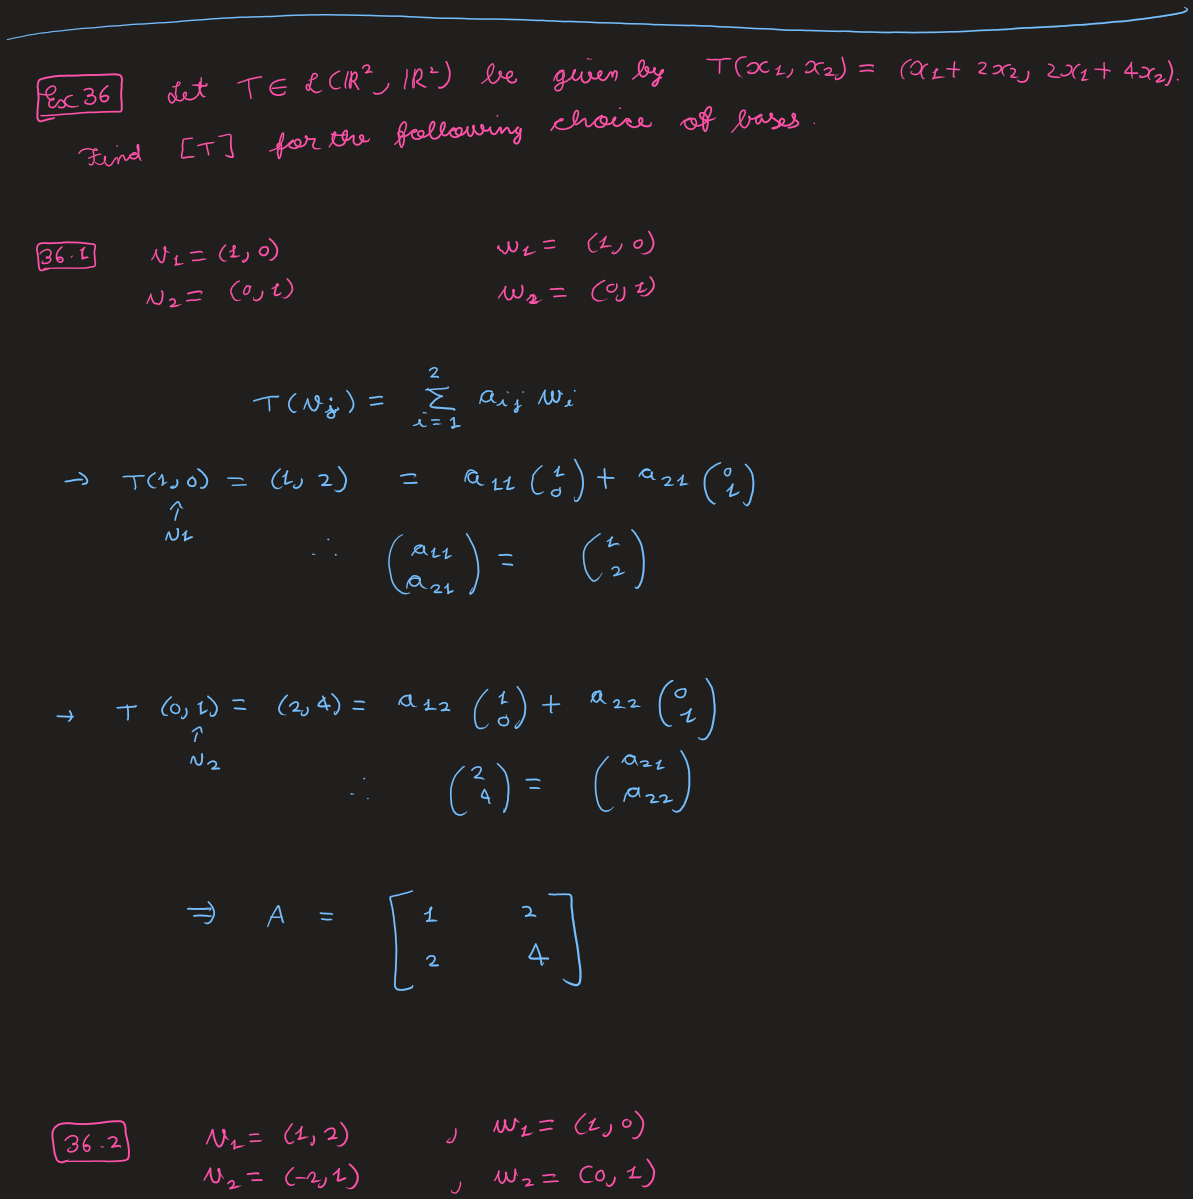 Ex 36 Let T ∈ L(ℝ², ℝ²) be given by T(x₁, x₂) = (x₁ + 2x₂, 2x₁ + 4x₂).
Find [T] for the following choice of bases.
36.1 v₁ = (1, 0) w₁ = (1, 0)
v₂ = (0, 1) w₂ = (0, 1)
T(vⱼ) = ∑_{i=1}^{2} aᵢⱼ wᵢ
→ T(1, 0) = (1, 2) = a₁₁ (1 0) + a₂₁ (0 1)
↑
v₁
∴ (a₁₁ a₂₁) = (1 2)
→ T (0, 1) = (2, 4) = a₁₂ (1 0) + a₂₂ (0 1)
↑
v₂
∴ (2 4) = (a₂₁ a₂₂)
⇒ A = [1 2
2 4]
36.2 v₁ = (1, 2) , w₁ = (1, 0)
v₂ = (-2, 1) , w₂ = (0, 1)